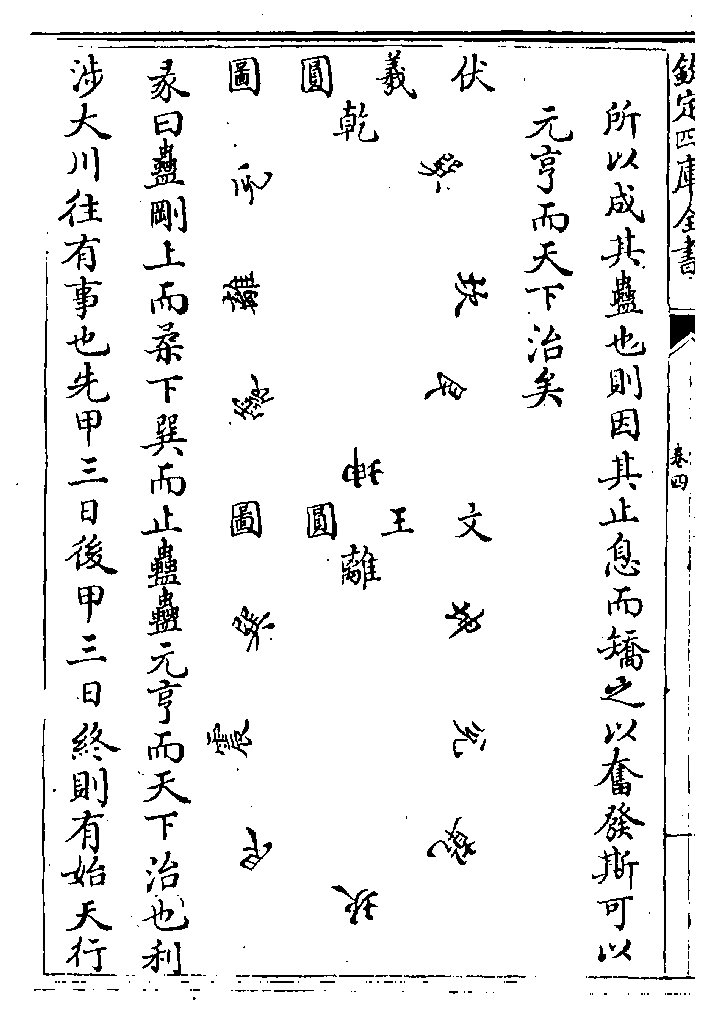 欽定四庫全書
卷四
所以成其蠱也則因其止息而矯之以奮發斯可以
元亨而天下治矣
伏羲圓圖
乾
巽
坎
艮
坤
震
離
兌
文王圓圖
離
坤
兌
乾
坎
艮
震
巽
彖曰蠱剛上而柔下巽而止蠱蠱元亨而天下治也利
涉大川往有事也先甲三日後甲三日終則有始天行